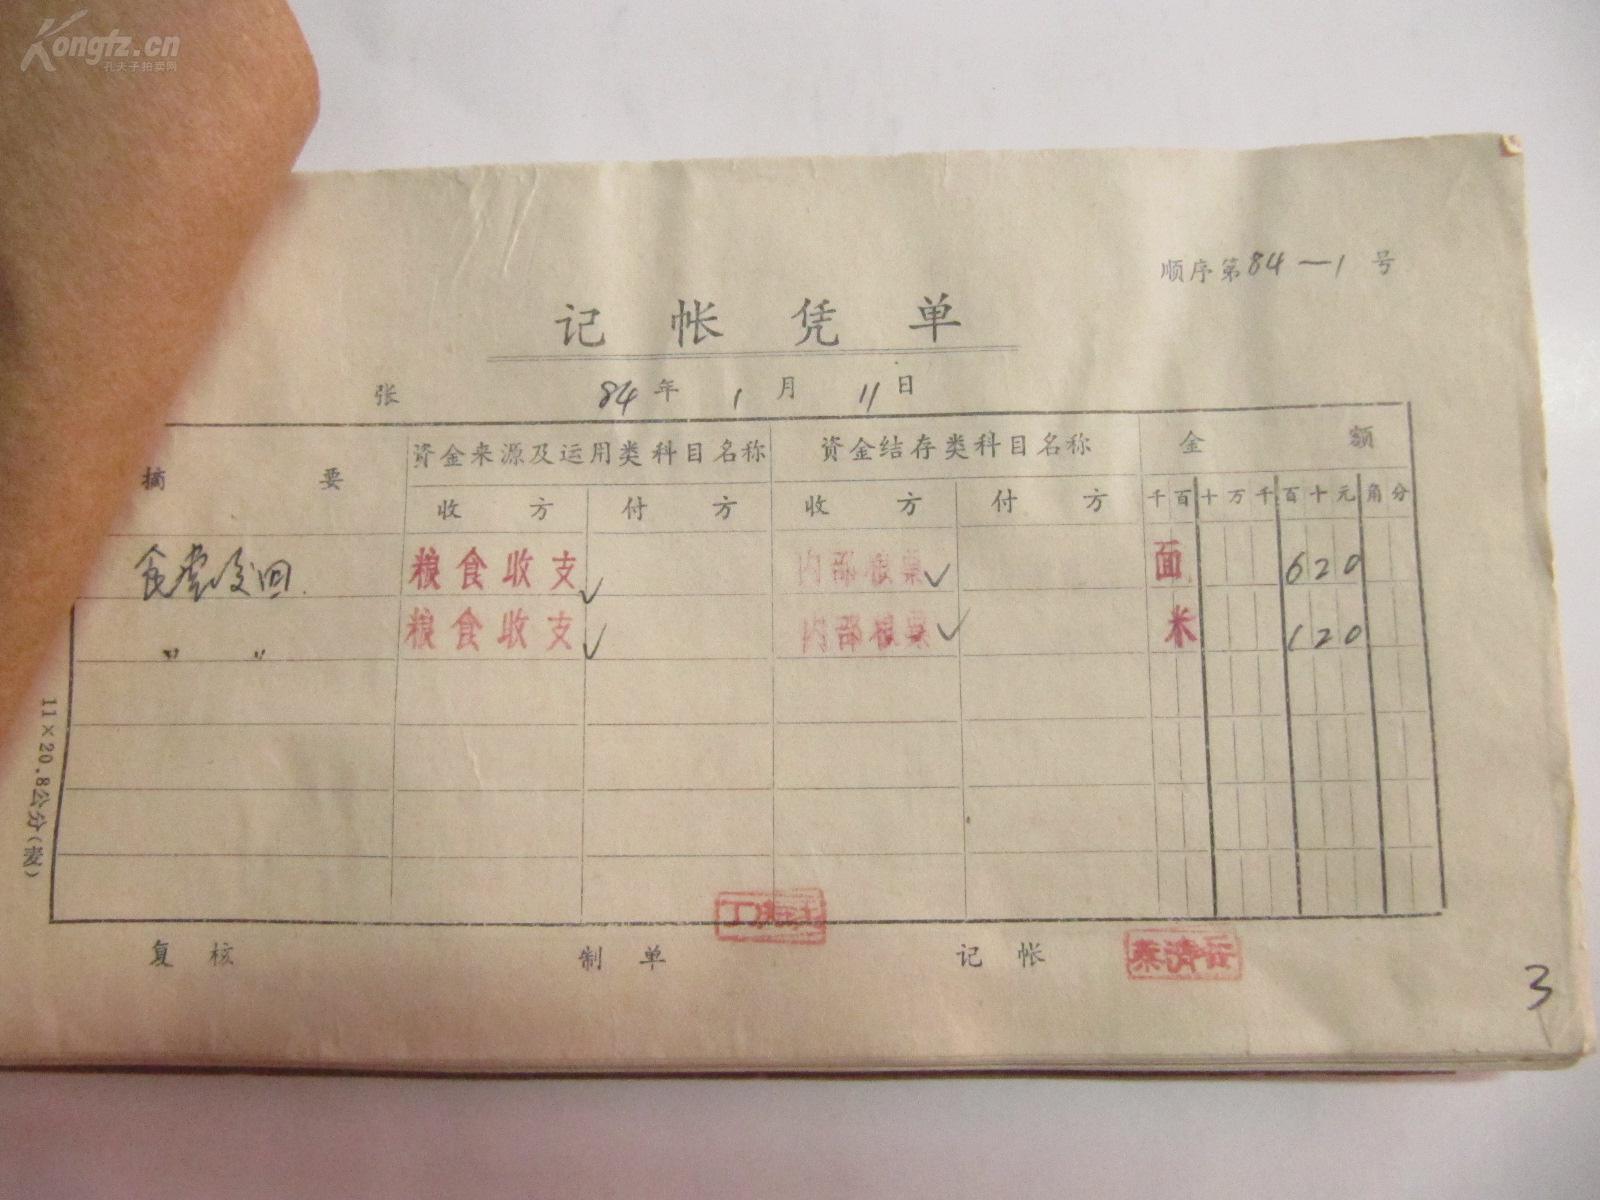 Kongfz.cn
孔夫子拍卖网
顺序第84—1号
记帐凭单
张 84年1月11日
摘要 资金来源及运用类科目名称 资金结存类科目名称 金额
收方 付方 收方 付方 千百十万千百十元角分
食堂收回 粮食收支 内部粮票 面 620
〃 〃 粮食收支 内部粮票 米 120
11×20.8公分(麦)
复核 制单 记帐
3